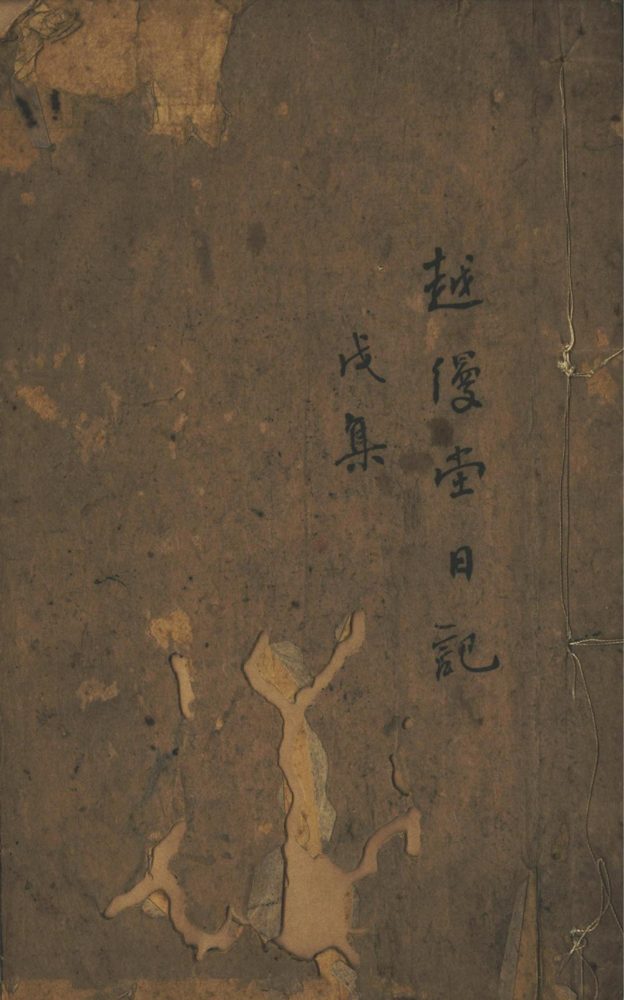 越缦堂日記
戊集